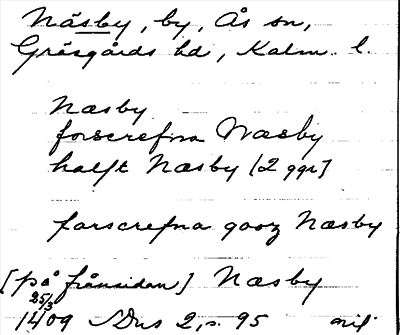 Näsby, by, Ås sn,
Gräsgårds hd, Kalm. l.
Næsby
forscrefna Næsby
halft Næsby [2 ggr]
forscrefna gooz Næsby
[på frånsidan] Næsby
25/3
1409 SDns 2, s. 95